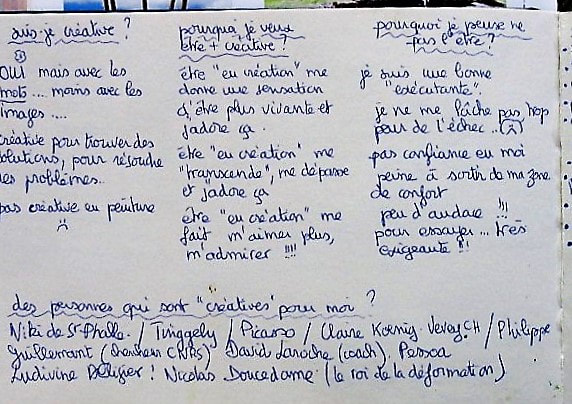 suis-je créative ?
OUI mais avec les
mots.... moins avec les
images ....
créative pour trouver des
solutions, pour résoudre
les problèmes..
pas créative en peinture
pourquoi je veux
être + créative ?
être "en création" me
donne une sensation
d'être plus vivante et
j'adore ça.
être "en création" me
"transcende", me dépasse
et j'adore ça
être "en création" me
fait m'aimer plus,
m'admirer !!!!
pourquoi je pense ne
pas l'être ?
je suis une bonne
"exécutante".
je ne me lâche pas trop
peur de l'échec...
pas confiance en moi
peine à sortir de ma zone
de confort
peu d'audace !!!
pour essayer... très
exigeante !!!
des personnes qui sont "créatives" pour moi ?
Niki de St-Phalle. / Tinggely / Picasso / Claire Koenig Vevey.CH / Philippe
Guillemant (CNRS) David Laroche (coach). Pessoa
Ludivine ! Nicolas Doucedame (le roi de la déformation)